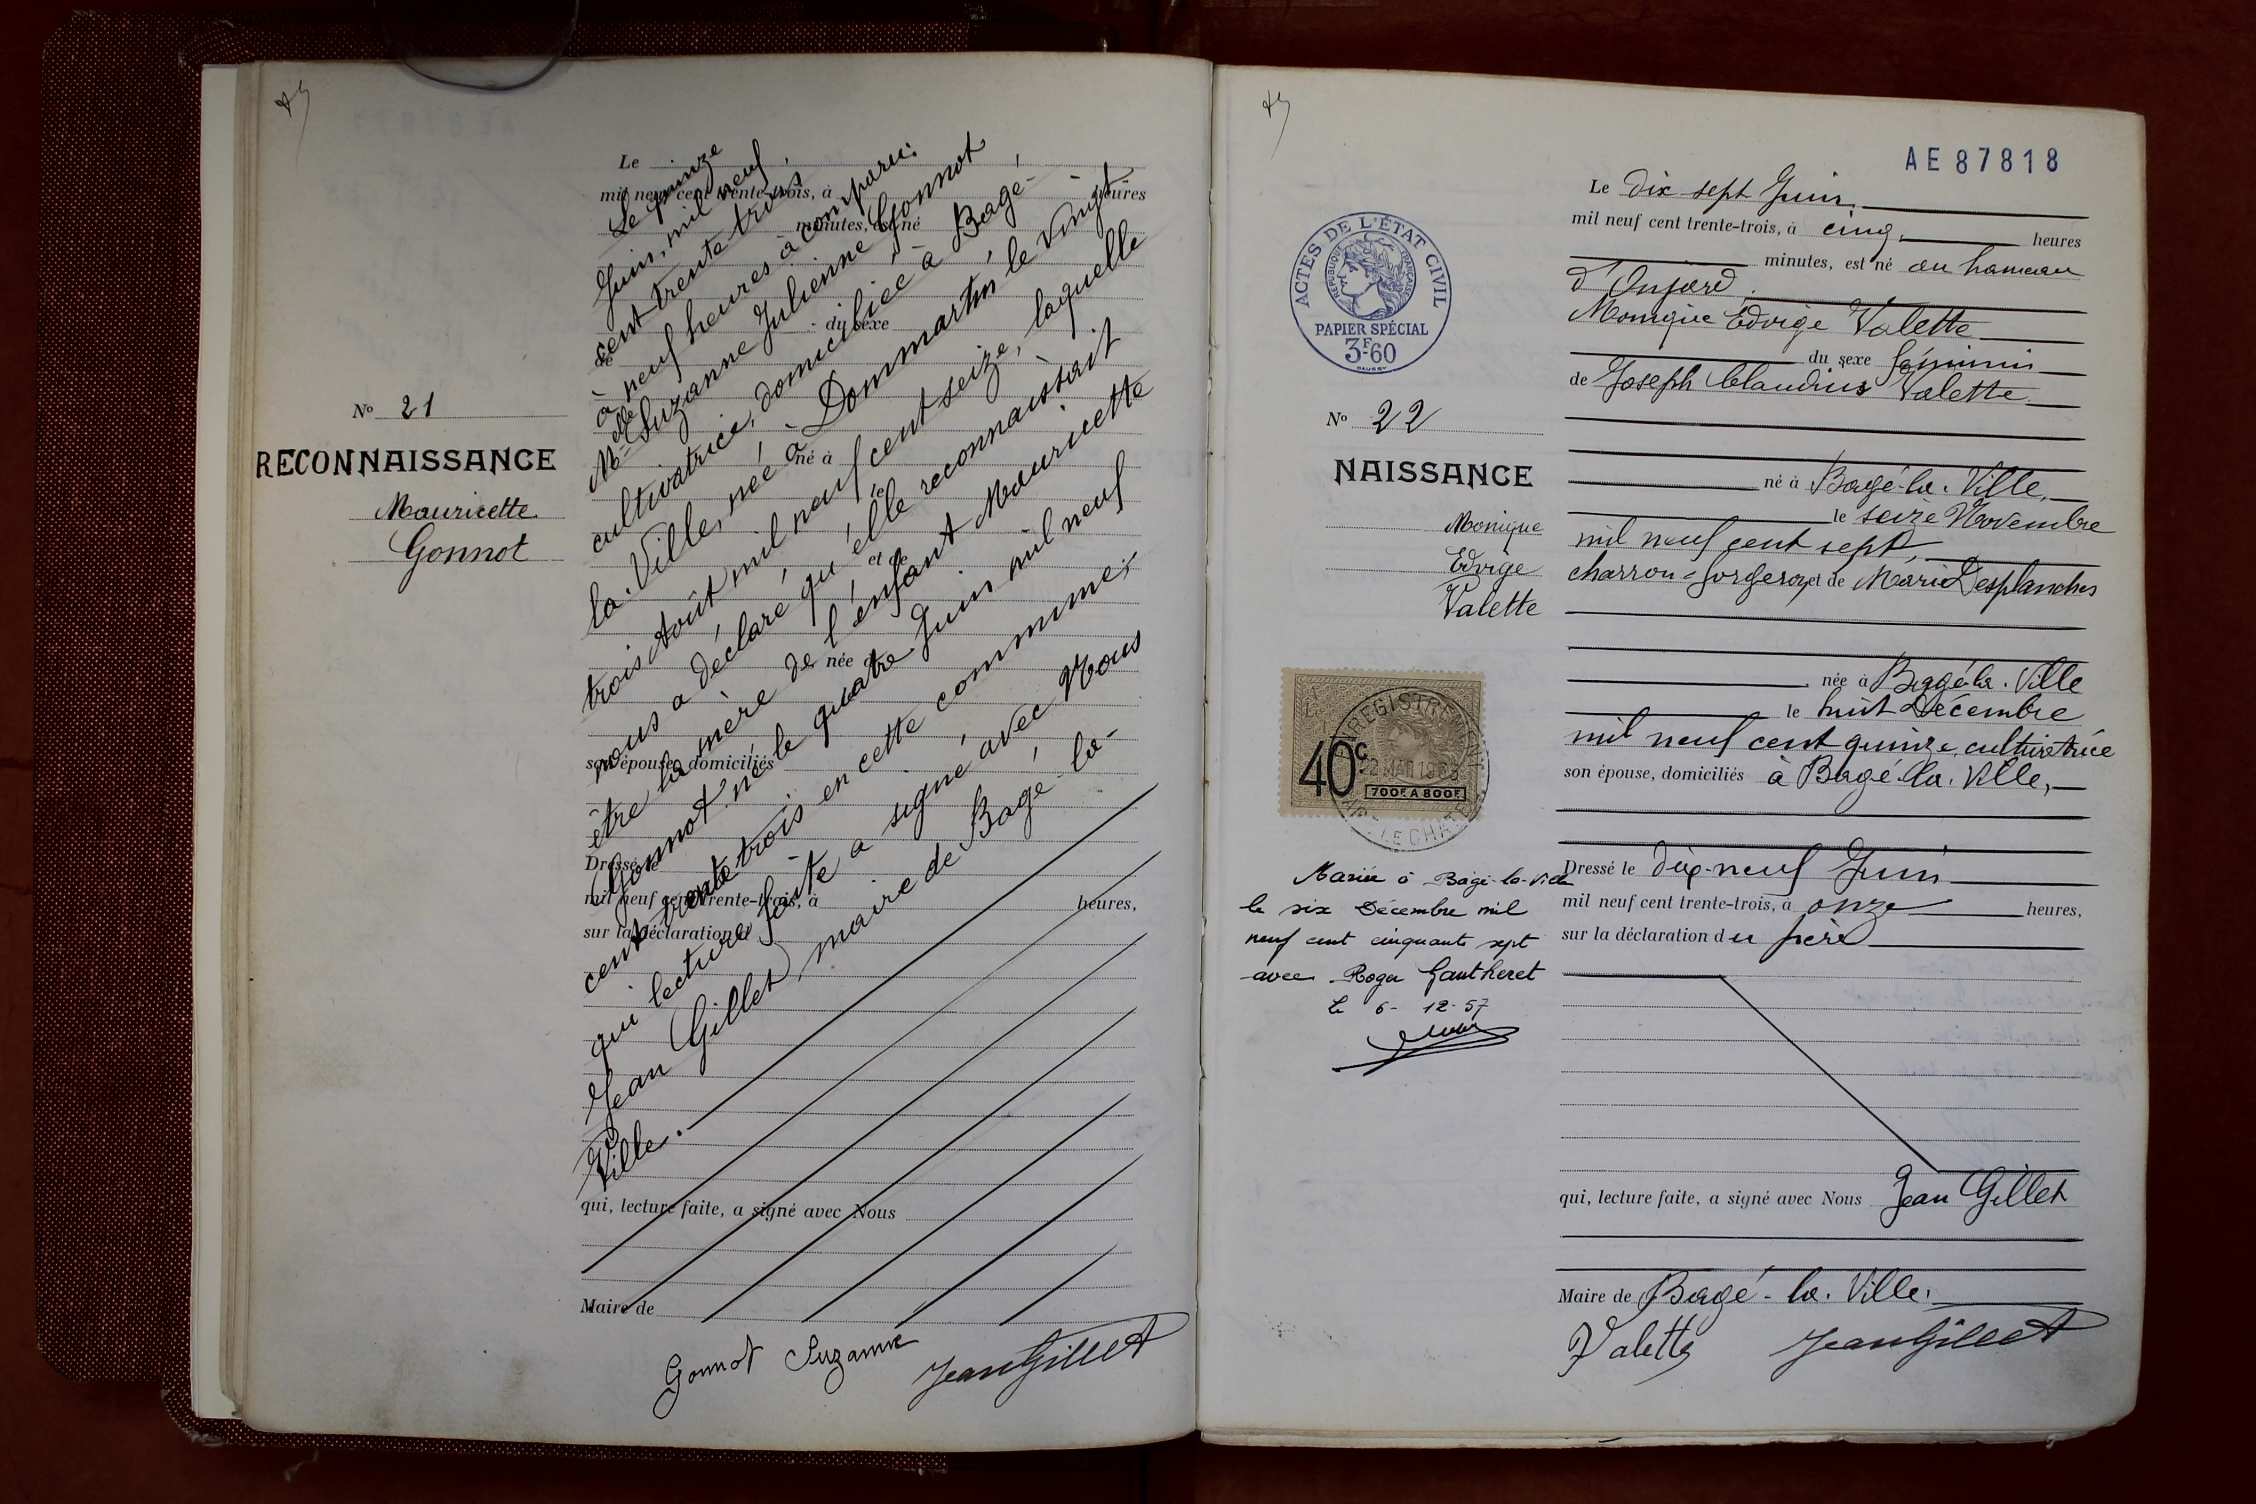 Le
mil neuf cent trente-trois, à heures
minutes, est né
du sexe
de
né à
le
et de
née à
son épouse, domiciliés
Dressé le
mil neuf cent trente-trois, à heures,
sur la déclaration d
qui, lecture faite, a signé avec Nous
Maire de
Nº 21
RECONNAISSANCE
Mauricette
Gonnot
Le quinze
Juin, mil neuf
cent trente trois,
à neuf heures à comparu:
Melle Suzanne Julienne Gonnot,
cultivatrice, domiciliée à Bagé-
la-Ville, née à Dommartin le vingt
trois Août mil neuf cent seize, laquelle
nous a déclaré qu'elle reconnaissait
être la mère de l'enfant Mauricette
Gonnot né le quatre Juin mil neuf
cent trente trois en cette commune;
qui lecture faite a signé avec Nous
Jean Gillet, maire de Bagé-la-
Ville.
Gonnot Suzanne
Jean Gillet
AE 87818
ACTES DE L'ÉTAT CIVIL
RÉPUBLIQUE FRANÇAISE
PAPIER SPÉCIAL
3F.60
Nº 22
NAISSANCE
Monique
Edvige
Valette
ENREGISTREMENT
40c
700F A 800F
LE CHATEL
Mariée à Bagé-la-Ville
le six Décembre mil
neuf cent cinquante sept
avec Roger Gautheret
Le 6-12-57
Le dix sept Juin
mil neuf cent trente-trois, à cinq heures
minutes, est né au hameau
d'Onjard,
Monique Edvige Valette
du sexe féminin
de Joseph Claudius Valette
né à Bagé-la-Ville,
le seize Novembre
mil neuf cent sept,
charron-forgeron et de Marie Desplanches
née à Bagé-la-Ville
le huit Décembre
mil neuf cent quinze, cultivatrice
son épouse, domiciliés à Bagé-la-Ville,
Dressé le dix-neuf Juin
mil neuf cent trente-trois, à onze heures,
sur la déclaration du père
qui, lecture faite, a signé avec Nous Jean Gillet
Maire de Bagé-la-Ville.
Valette
Jean Gillet